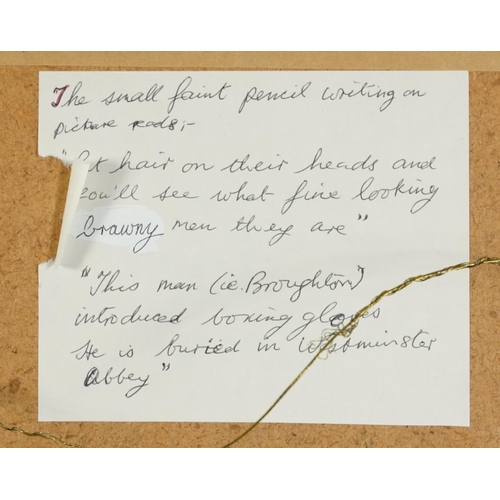 The small faint pencil writing on
picture reads;-
" hair on their heads and
you'll see what fine looking
brawny men they are"
"This man (ie. Broughton")
introduced boxing gloves
He is buried in Westminster
Abbey"